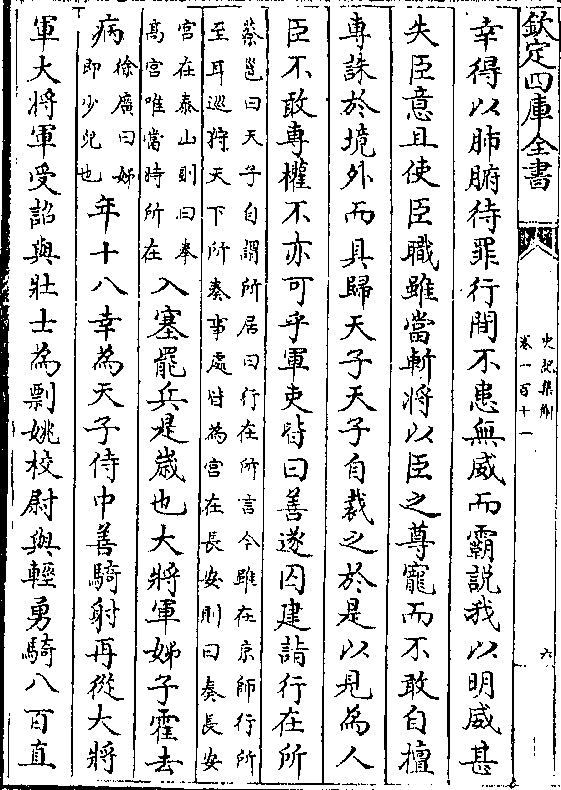 欽定四庫全書
史記集解
卷一百十一
六
幸得以肺腑待罪行間不患無威而霸說我以明威甚
失臣意且使臣職雖當斬將以臣之尊寵而不敢自擅
專誅於境外而具歸天子天子自裁之於是以見為人
臣不敢專權不亦可乎軍吏皆曰善遂囚建詣行在所
蔡邕曰天子自謂所居曰行在所言今雖在京師行所
至耳巡狩天下所奏事處皆為宮在長安則曰奏長安
宮在泰山則曰奉
高宮唯當時所在
入塞罷兵是嵗也大將軍姊子霍去
病
徐廣曰姊
即少兒也
年十八幸為天子侍中善騎射再從大將
軍大將軍受詔與壯士為剽姚校尉與輕勇騎八百直